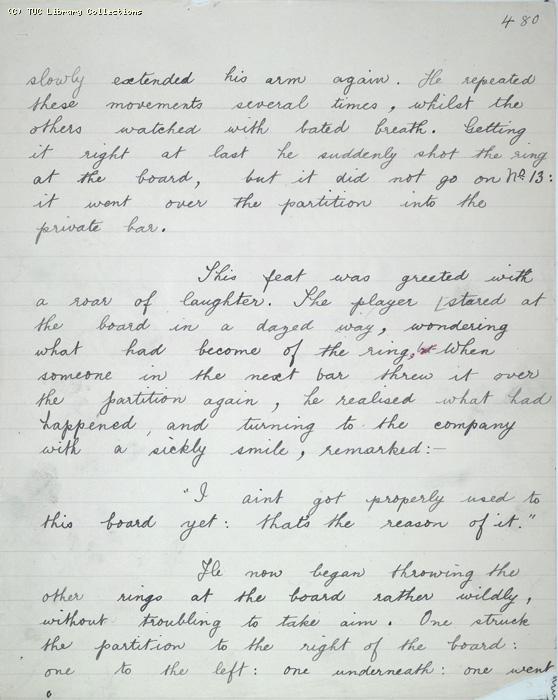 (C) TUC Library Collections
480
slowly extended his arm again. He repeated
these movements several times, whilst the
others watched with bated breath. Getting
it right at last he suddenly shot the ring
at the board, but it did not go on No. 13:
it went over the partition into the
private bar.
This feat was greeted with
a roar of laughter. The player [stared at
the board in a dazed way, wondering
what had become of the ring, but When
someone in the next bar threw it over
the partition again, he realised what had
happened, and turning to the company
with a sickly smile, remarked:—
"I aint got properly used to
this board yet: thats the reason of it."
He now began throwing the
other rings at the board rather wildly,
without troubling to take aim. One struck
the partition to the right of the board:
one to the left: one underneath: one went